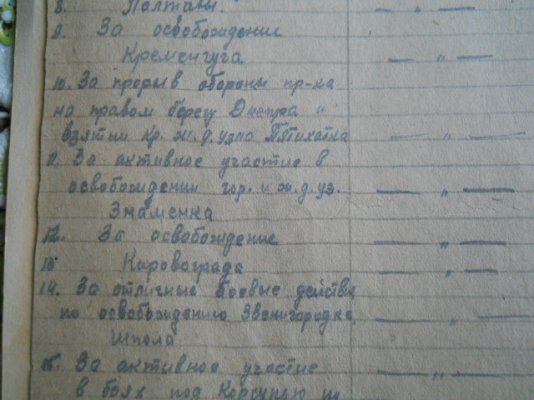 8. Полтавы. — „ —
9. За освобождение
Кременчуга — „ —
10. За прорыв обороны пр-ка
на правом берегу Днепра и
взятии кр. ж.д. узла Пятихатка — „ —
11. За активное участие в
освобождении гор. и ж.д. уз. — „ —
Знаменка
12. За освобождение — „ —
13 Кировограда — „ —
14. За отличные боевые действ
по освобождению Звенигородка, — „ —
Шпола
15. За активное участие — „ —
в боях под Корсунью